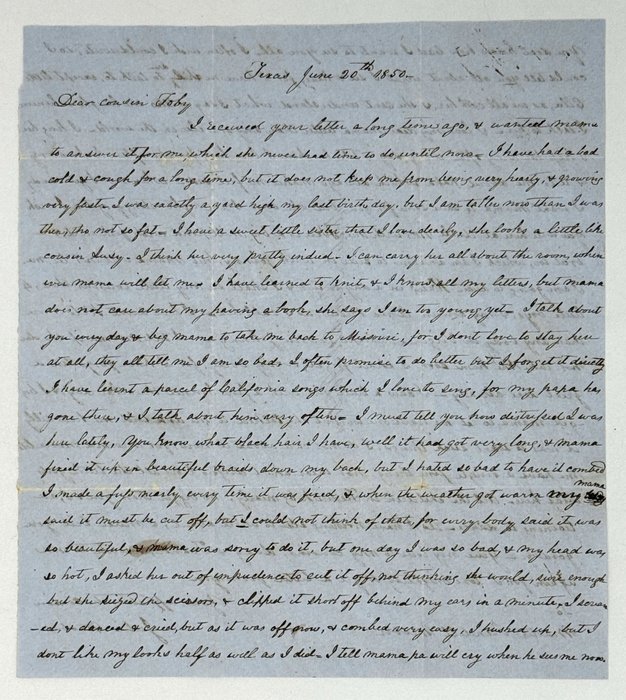 Texas June 20th 1850-
Dear cousin Toby
I received your letter a long time ago, & wanted mama
to answer it for me which she never had time to do until now- I have had a bad
cold & cough for a long time, but it does not keep me from being very hearty, & growing
very fast- I was exactly a yard high my last birth day, but I am taller now than I was
then, tho not so fat- I have a sweet little sister that I love dearly, she looks a little like
cousin Susy- I think her very pretty indeed- I can carry her all about the room, when
ever mama will let me- I have learned to knit, & I know all my letters, but mama
does not care about my having a book, she says I am too young yet- I talk about
you every day & beg mama to take me back to Missouri, for I dont love to stay here
at all, they all tell me I am so bad, I often promise to do better but I forget it directly
I have learnt a parcel of California songs which I love to sing, for my papa has
gone there, & I talk about him very often- I must tell you how distressed I was
here lately, You know what black hair I have, well it had got very long, & mama
fixed it up in beautiful braids down my back, but I hated so bad to have it combed
I made a fuss nearly every time it was fixed, & when the weather got warm my mama
said it must be cut off, but I could not think of that, for every body said it was
so beautiful, & mama was sorry to do it, but one day I was so bad, & my head was
so hot, I asked her out of impudence to cut it off, not thinking she would, sure enough
but she seized the scissors, & clipped it short off behind my ears in a minute, I scream
-ed, & danced & cried, but as it was off now, & combed very easy, I hushed up, but I
dont like my looks half as well as I did- I tell mama pa will cry when he sees me now.